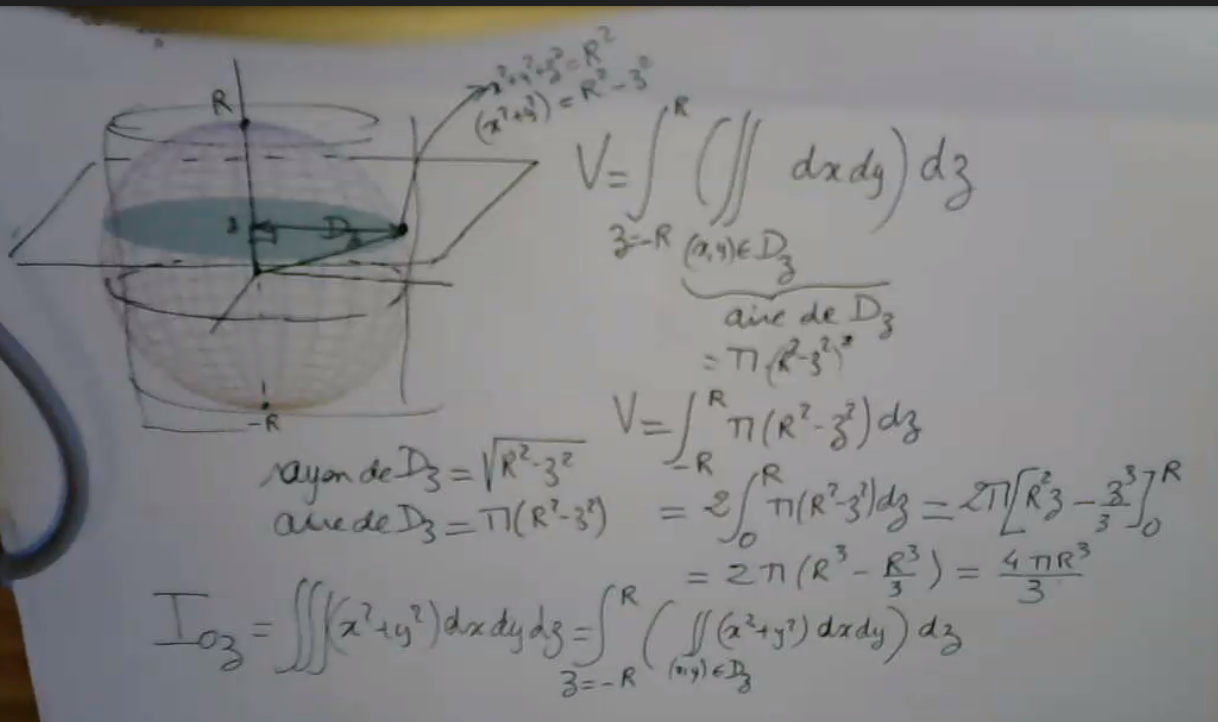 x²+y²+z²=R²
(x²+y²)=R²-z²
R
V=∫_{z=-R}^{R} (∬_{(x,y)∈D_z} dxdy) dz
z
D_z
aire de D_z
= π(R²-z²)
-R
V=∫_{-R}^{R} π(R²-z²)dz
rayon de D_z = √(R²-z²)
aire de D_z = π(R²-z²)
= 2∫_0^R π(R²-z²)dz = 2π[R²z - z³/3]_0^R
= 2π(R³ - R³/3) = 4πR³/3
I_{oz} = ∭(x²+y²)dxdydz = ∫_{z=-R}^{R} (∬_{(x,y)∈D_z} (x²+y²)dxdy) dz